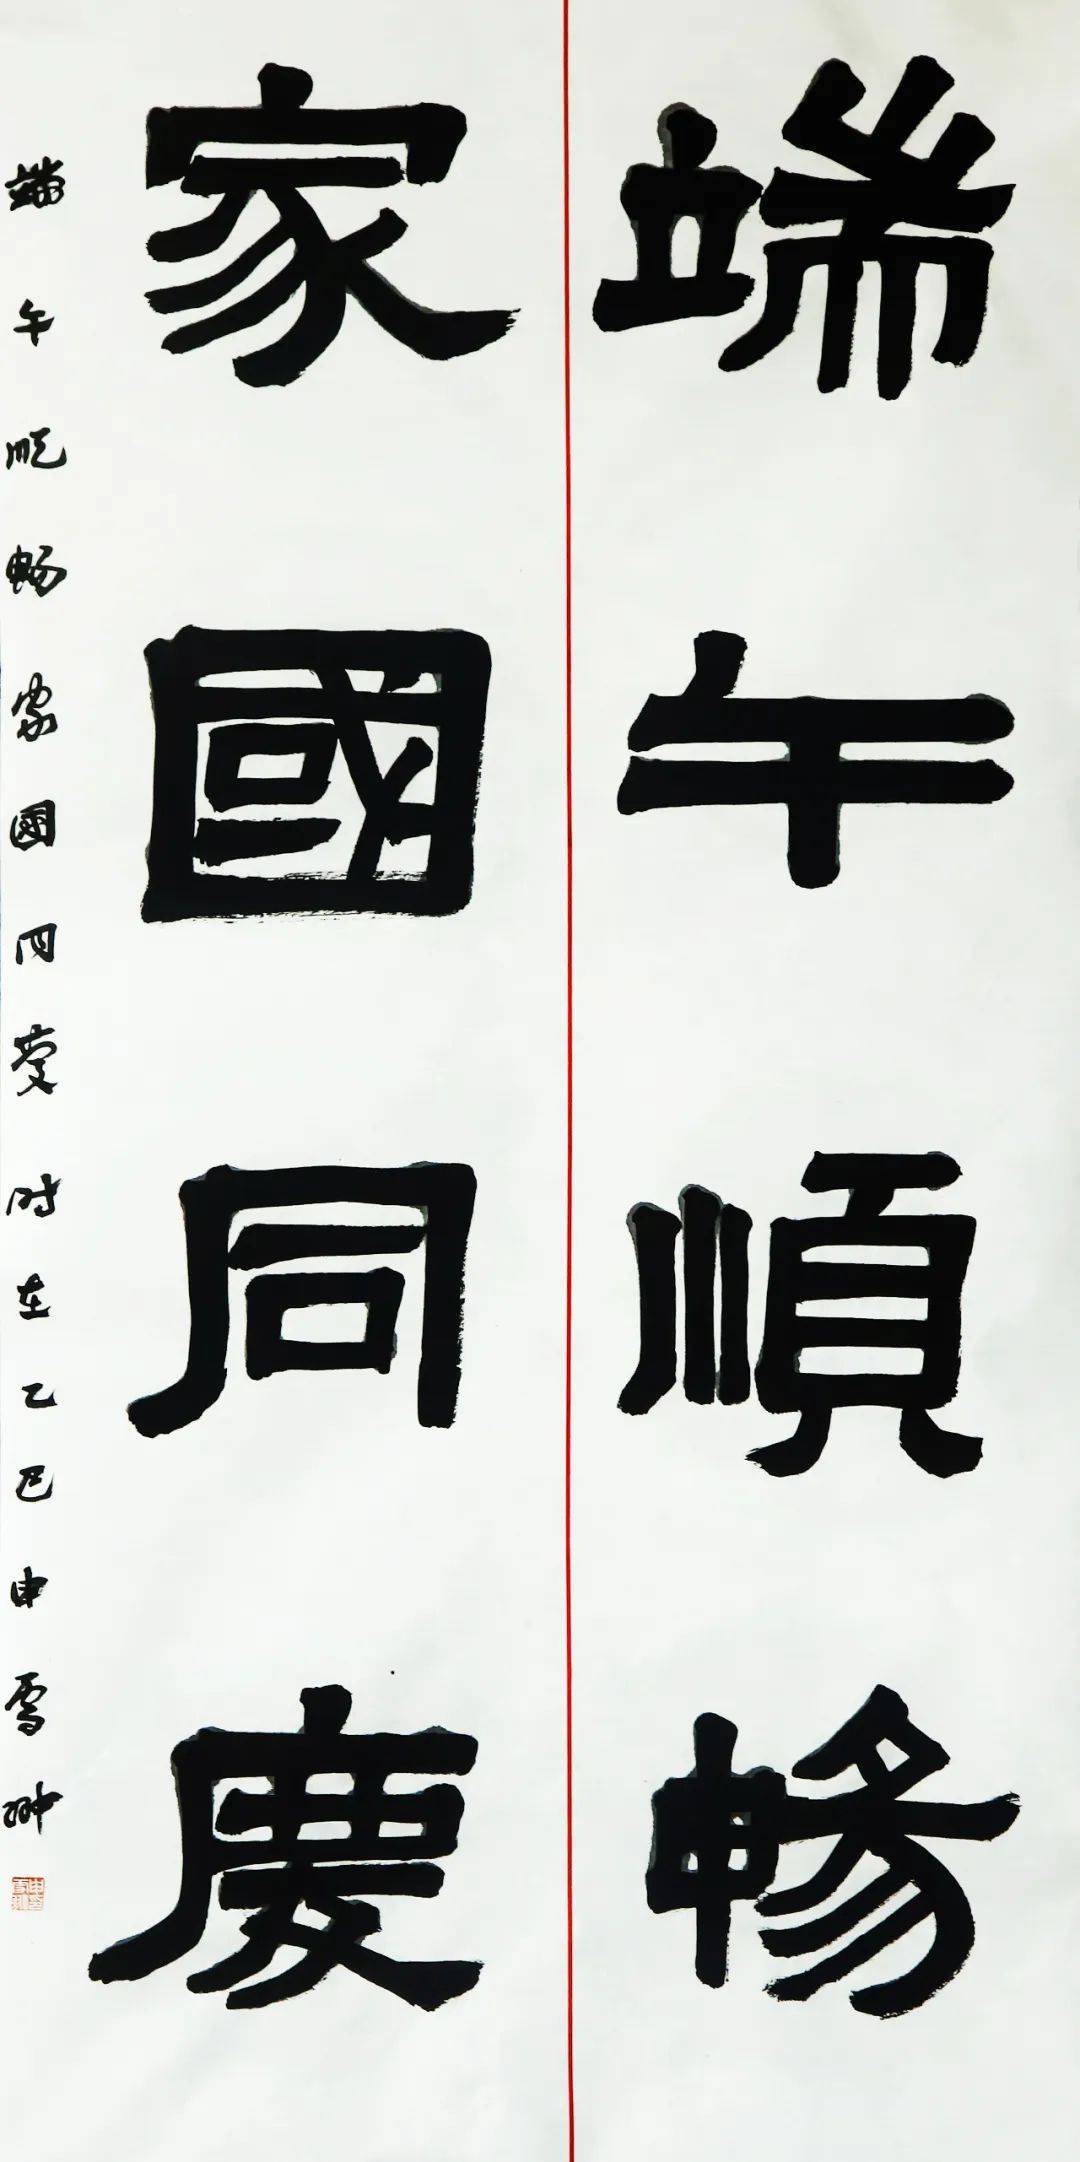 端午順暢
家國同慶
端午順畅家國同慶时在乙巳申雪翀